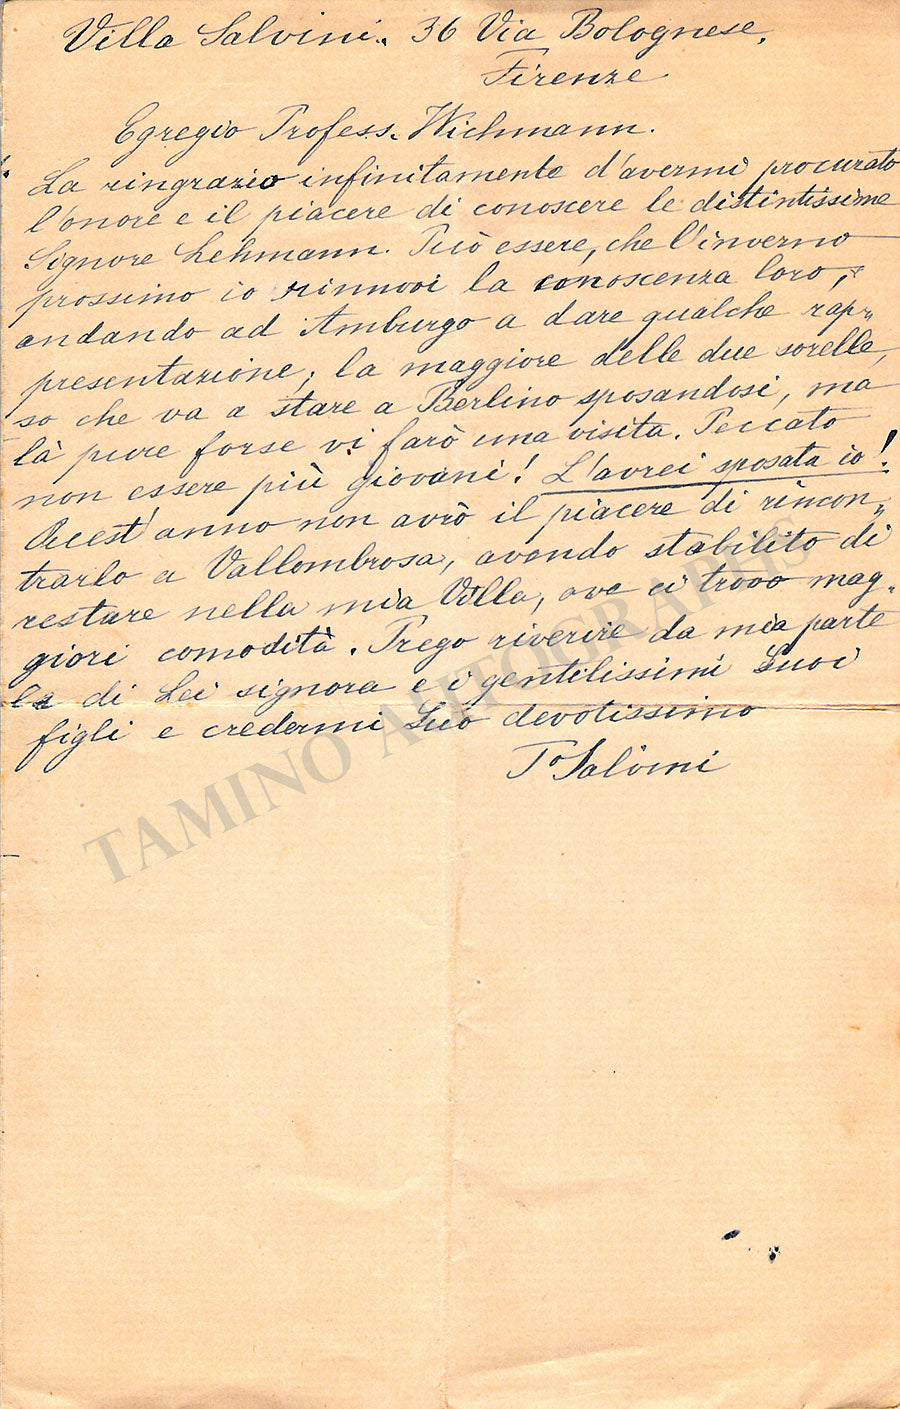 Villa Salvini. 36 Via Bolognese,
Firenze
Egregio Profess. Wichmann.
La ringrazio infinitamente d'avermi procurato
l'onore e il piacere di conoscere le distintissime
Signore Lehmann. Può essere, che l'inverno
prossimo io rinnovi la conoscenza loro,
andando ad Amburgo a dare qualche rap-
presentazione; la maggiore delle due sorelle,
so che va a stare a Berlino sposandosi, ma
là pure forse vi farò una visita. Peccato
non essere più giovani! L'avrei sposata io!
Quest'anno non avrò il piacere di rincon-
trarlo a Vallombrosa, avendo stabilito di
restare nella mia Villa, ove ci trovo mag-
giori comodità. Prego riverire da mia parte
la di Lei signora e i gentilissimi Suoi
figli e credermi Suo devotissimo
To Salvini
TAMINO AUTOGRAPHS